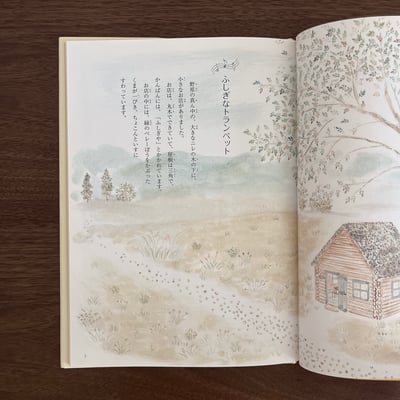 ふしぎなトランペット
野原の真ん中の、大きなニレの木の下に、
小さなお店がありました。
お店は、丸木でできていて、屋根は三角で、
かんばんには、「ふしぎや」とかかれています。
お店の中には、緑のベレーぼうをかぶった
くまが一ぴき、ちょこんといすに
すわっています。